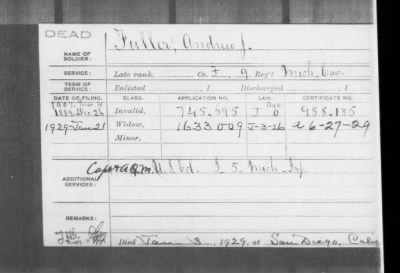 DEAD
NAME OF SOLDIER: Fuller, Andrew J.
SERVICE: Late rank, Co. F, 9 Reg't Mich. Cav.
TERM OF SERVICE: Enlisted , 1 Discharged , 1
DATE OF FILING. CLASS. APPLICATION NO. LAW. CERTIFICATE NO.
1889 Dec 26 Invalid, 745.695 J 988.185
1929-Jan-21 Widow, 1633009 J-3-26 6-27-29
Minor,
ADDITIONAL SERVICES: Capt & A.Q.M. U.S. Vol. I 5. Mich. Inf.
REMARKS:
Died Jan 3, 1929, at San Diego, Calif